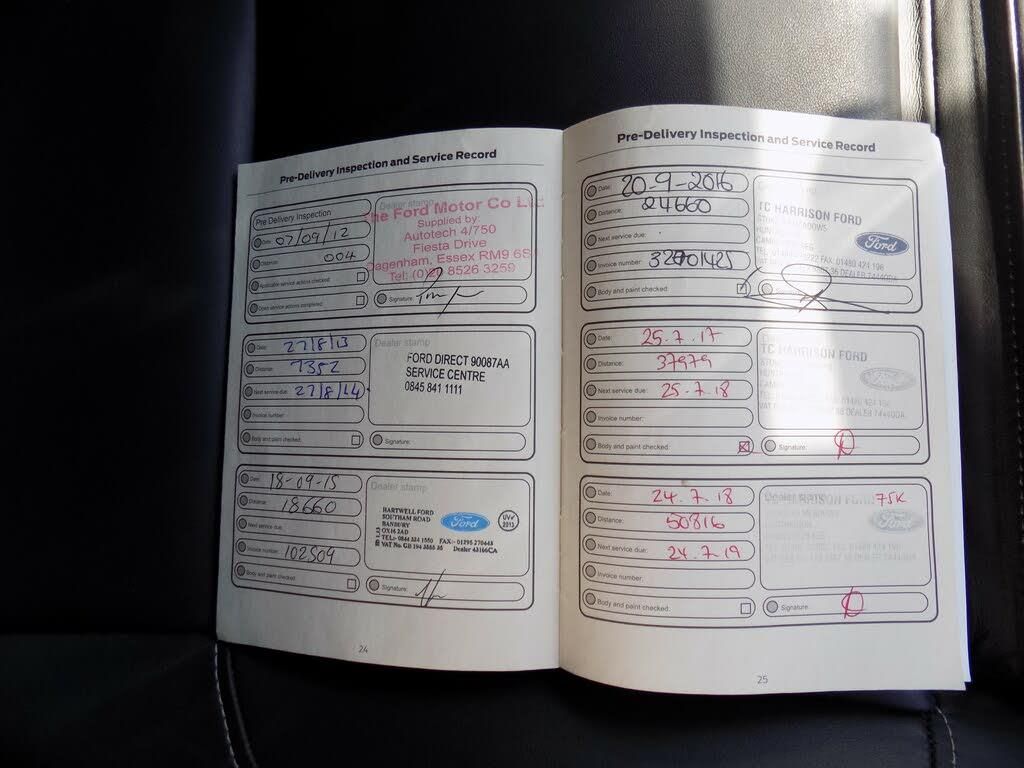 Pre-Delivery Inspection and Service Record
Pre Delivery Inspection
Date: 07/09/12
Distance: 004
Applicable service actions checked:
Open service actions completed:
Dealer stamp
The Ford Motor Co Ltd
Supplied by:
Autotech 4/750
Fiesta Drive
Dagenham, Essex RM9 6SA
Tel: 8526 3259
Signature:
Date: 27/8/13
Distance: 7352
Next service due: 27/8/14
Invoice number:
Body and paint checked:
Dealer stamp
FORD DIRECT 90087AA
SERVICE CENTRE
0845 841 1111
Signature:
Date: 18-09-15
Distance: 18660
Next service due:
Invoice number: 102509
Body and paint checked:
Dealer stamp
HARTWELL FORD
SOUTHAM ROAD
BANBURY
OX16 2AD
TEL:- 0844 324 1550 FAX:- 01295 270448
VAT No. GB 194 3888 36 Dealer 43166CA
Ford
UV✓
2013
Signature:
24
Pre-Delivery Inspection and Service Record
Date: 20-9-2016
Distance: 24660
Next service due:
Invoice number: 32701425
Body and paint checked:
TC HARRISON FORD
FAX: 01480 424 196
36 DEALER 74440DA
Ford
Date: 25.7.17
Distance: 37979
Next service due: 25.7.18
Invoice number:
Body and paint checked:
Dealer stamp
TC HARRISON FORD
01480 424 196
DEALER 74440DA
Signature:
Date: 24.7.18
Distance: 50816
Next service due: 24.7.19
Invoice number:
Body and paint checked:
Dealer stamp
TC HARRISON FORD
75K
Ford
Signature:
25